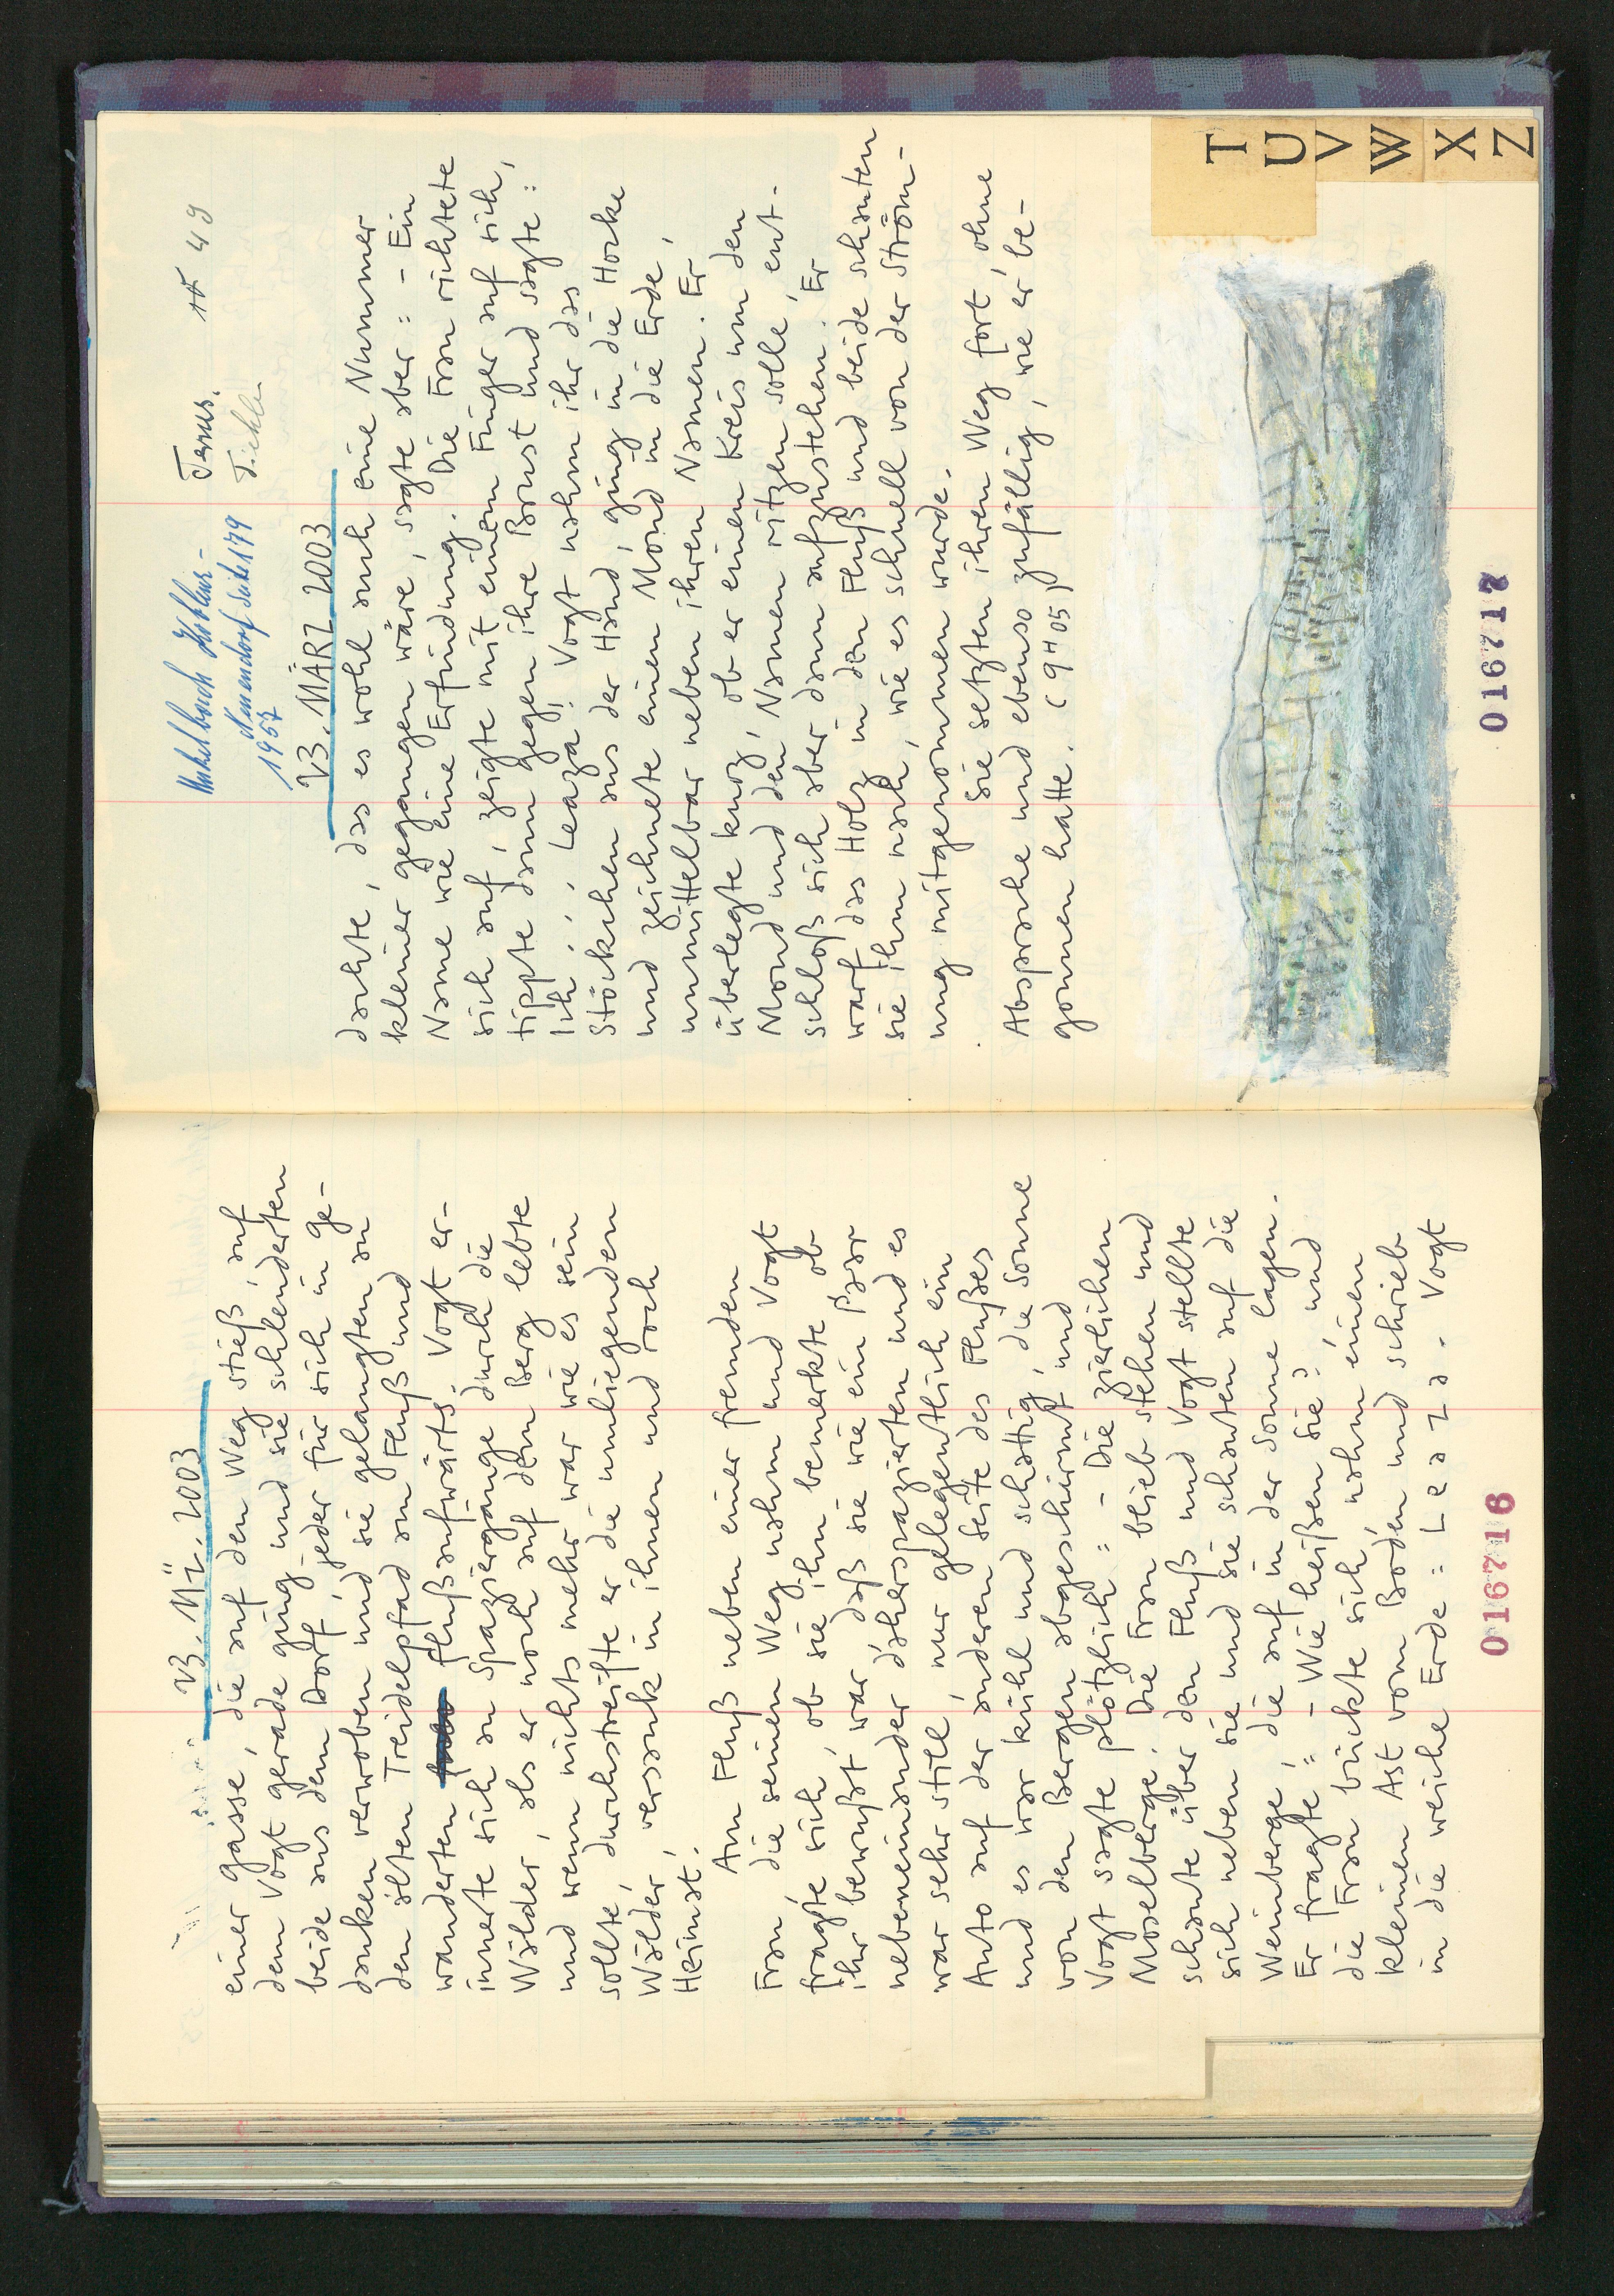 23. MÄ. 2003
einer Gasse, die auf den Weg stieß, auf
dem Vogt gerade ging und sie schlenderten
beide aus dem Dorf, jeder für sich in Ge-
danken verwoben und sie gelangten an
den alten Treidelpfad am Fluß und
wanderten flußaufwärts. Vogt er-
innerte sich an Spaziergänge durch die
Wälder, als er noch auf dem Berg lebte
und wenn nichts mehr war wie es sein
sollte, durchstreifte er die umliegenden
Wälder, versank in ihnen und roch
Heimat.
Am Fluß neben einer fremden
Frau, die seinen Weg nahm und Vogt
fragte sich, ob sie ihn bemerkte, ob
ihr bewußt war, daß sie wie ein Paar
nebeneinander daherspazierten und es
war sehr still, nur gelegentlich ein
Auto auf der anderen Seite des Flußes
und es war kühl und schattig, die Sonne
von den Bergen abgeschirmt und
Vogt sagte plötzlich: - Die zierlichen
Moselberge. Die Frau blieb stehen und
schaute über den Fluß und Vogt stellte
sich neben sie und sie schauten auf die
Weinberge, die auf in der Sonne lagen.
Er fragte: - Wie heißen Sie? und
die Frau bückte sich, nahm einen
kleinen Ast vom Boden und schrieb
in die weiche Erde: Leaza. Vogt
016716
Koblenz-
Neuendorf Seite 179
1957
49
23. MÄRZ 2003
dachte, das es wohl auch eine Nummer
kleiner gegangen wäre, sagte aber: - Ein
Name wie eine Erfindung. Die Frau richtete
sich auf, zeigte mit einem Finger auf sich,
tippte dann gegen ihre Brust und sagte:
Ich, Leaza! Vogt nahm ihr das
Stöckchen aus der Hand, ging in die Hocke
und zeichnete einen Mond in die Erde,
unmittelbar neben ihren Namen. Er
überlegte kurz, ob er einen Kreis um den
Mond und den Namen ritzen solle, ent-
schloß sich aber dann aufzustehen. Er
warf das Holz in den Fluß und beide schauten
sie ihm nach, wie es schnell von der Ström-
ung mitgenommen wurde.
Sie setzten ihren Weg fort, ohne
Absprache und ebenso zufällig, wie er be-
gonnen hatte. (9405)
016717
T
U
V
W
X
Z